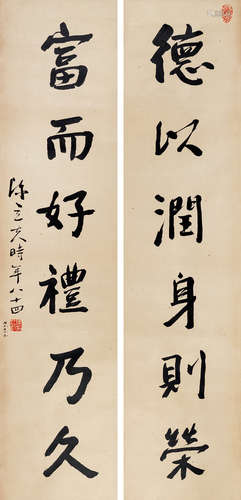 德以潤身則榮
富而好禮乃久
陳立夫時年八十四